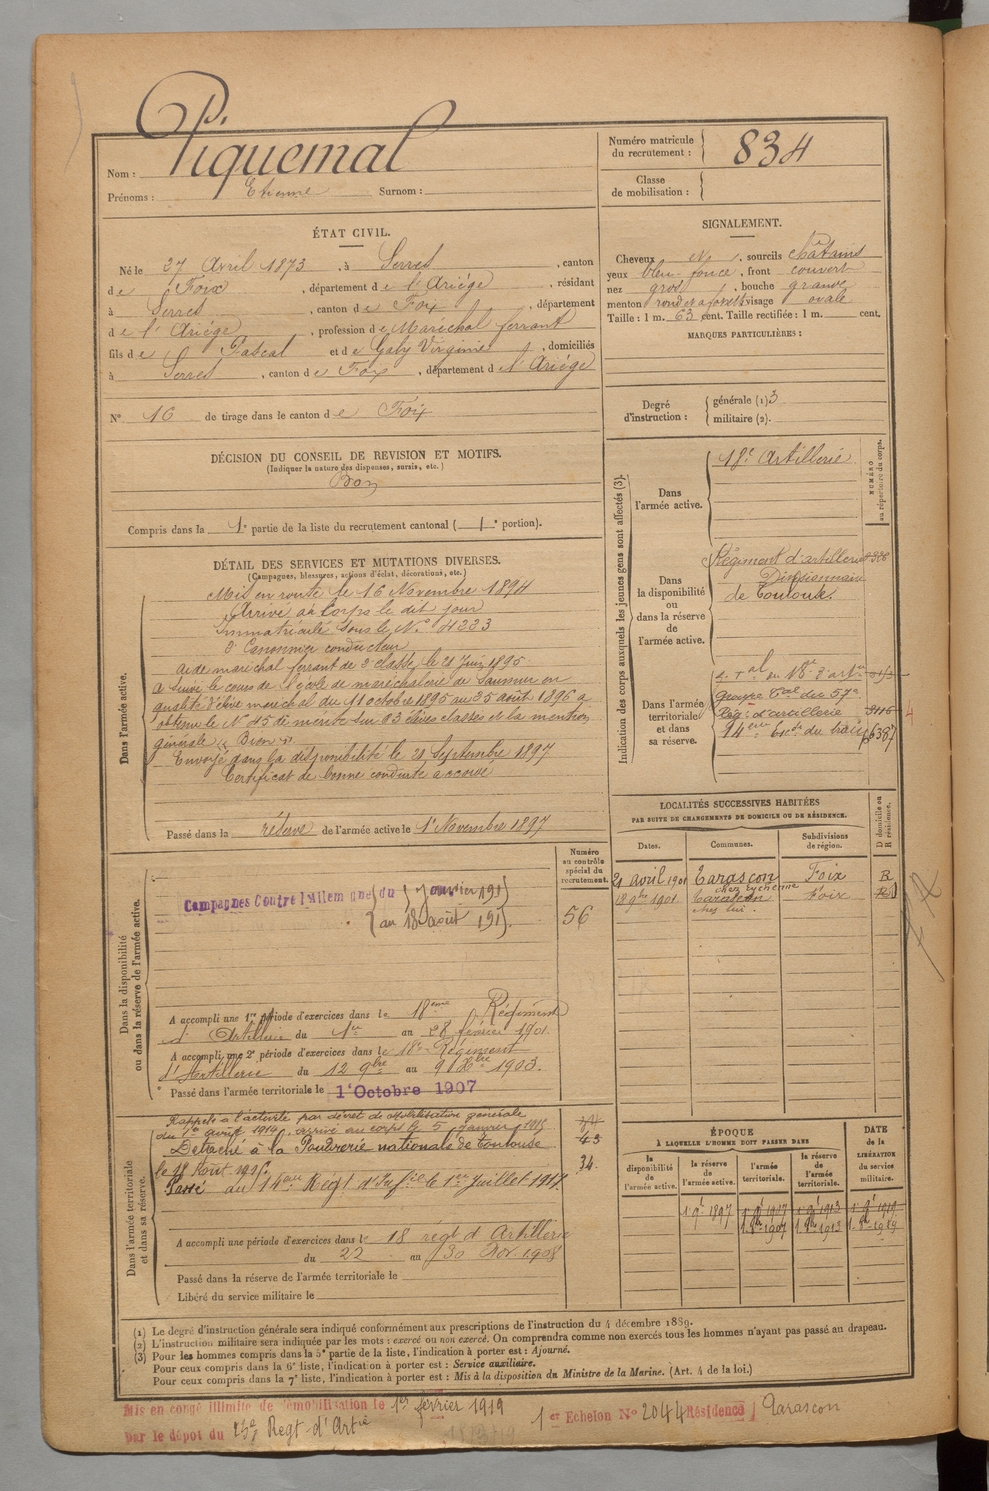 Nom : Piquemal
Prénoms : Etienne Surnom :
Numéro matricule du recrutement : 834
Classe de mobilisation :
ÉTAT CIVIL.
Né le 27 Avril 1873, à Serres, canton
de Foix, département de l'Ariège, résidant
à Serres, canton de Foix, département
de l'Ariège, profession de Maréchal ferrant
fils de Pascal et de Gaby Virginie, domiciliés
à Serres, canton de Foix, département d l'Ariège
N° 16 de tirage dans le canton de Foix
SIGNALEMENT.
Cheveux , sourcils châtains
yeux bleu foncé, front couvert
nez gros, bouche grande
menton rond visage ovale
Taille : 1 m. 63 cent. Taille rectifiée : 1 m. cent.
MARQUES PARTICULIÈRES :
Degré d'instruction : générale (1) 3
militaire (2).
DÉCISION DU CONSEIL DE REVISION ET MOTIFS.
(Indiquer la nature des dispenses, sursis, etc.)
Bon
Compris dans la 1e partie de la liste du recrutement cantonal (1e portion).
DÉTAIL DES SERVICES ET MUTATIONS DIVERSES.
(Campagnes, blessures, actions d'éclat, décorations, etc.)
Dans l'armée active.
Mis en route le 16 Novembre 1894
Arrivé au Corps le dit jour
Immatriculé sous le N° 4223
2e Canonnier conducteur
Aide maréchal ferrant de 2e classe, le 21 Juin 1895.
A suivi le cours de l'école de maréchalerie de Saumur en
qualité d'élève maréchal du 11 octobre 1895 au 25 août 1896 a
obtenu le N° 45 de mérite sur 93 élèves classés et la mention
générale « Bien »
Envoyé dans la disponibilité le 21 Septembre 1897
Certificat de bonne conduite accordé
Passé dans la réserve de l'armée active le 1er Novembre 1897
Indication des corps auxquels les jeunes gens sont affectés (3).
NUMÉRO au répertoire du corps.
Dans l'armée active.
18e Artillerie
Dans la disponibilité ou dans la réserve de l'armée active.
Régiment d'artillerie
Divisionnaire
de Toulouse.
Dans l'armée territoriale et dans sa réserve.
groupe Tal du 57e
Rég. d'artillerie
14ème Esc. du train 6387
LOCALITÉS SUCCESSIVES HABITÉES
PAR SUITE DE CHANGEMENTS DE DOMICILE OU DE RÉSIDENCE.
Dates. Communes. Subdivisions de région. D domicile ou R résidence.
21 avril 1901 Tarascon Foix R
18 9bre 1901 Tarascon Foix
chez lui.
Dans la disponibilité ou dans la réserve de l'armée active.
Numéro au contrôle spécial du recrutement.
56
Campagnes Contre l'Allemagne du janvier 191
au 18 août 191
A accompli une 1re période d'exercices dans le 18ème Régiment
d'Artillerie du 1er au 28 février 1901.
A accompli une 2e période d'exercices dans le 18e Régiment
d'Artillerie du 12 9bre au 9 Xbre 1903.
Passé dans l'armée territoriale le 1er Octobre 1907
Dans l'armée territoriale et dans sa réserve.
Rappelé à l'activité par décret de mobilisation générale
du 1er août 1914, arrivé au corps le 5 janvier 1915
Détaché à la Poudrerie nationale de Toulouse
le 18 Août 1915.
Passé au 14ème Régt d'Inf.ie le 1er Juillet 1917.
43
34
A accompli une période d'exercices dans le 18 régt d'Artillerie
du 22 au 30 Nov. 1908
Passé dans la réserve de l'armée territoriale le
Libéré du service militaire le
ÉPOQUE
À LAQUELLE L'HOMME DOIT PASSER DANS
DATE de la LIBÉRATION du service militaire.
la disponibilité de l'armée active. la réserve de l'armée active. l'armée territoriale. la réserve de l'armée territoriale.
(1) Le degré d'instruction générale sera indiqué conformément aux prescriptions de l'instruction du 4 décembre 1889.
(2) L'instruction militaire sera indiquée par les mots : exercé ou non exercé. On comprendra comme non exercés tous les hommes n'ayant pas passé au drapeau.
(3) Pour les hommes compris dans la 5e partie de la liste, l'indication à porter est : Ajourné.
Pour ceux compris dans la 6e liste, l'indication à porter est : Service auxiliaire.
Pour ceux compris dans la 7e liste, l'indication à porter est : Mis à la disposition du Ministre de la Marine. (Art. 4 de la loi.)
Mis en congé illimité de démobilisation le 1er février 1919
1er Echelon N° 2044 Résidence Tarascon
par le dépôt du 23e Regt d'Artie